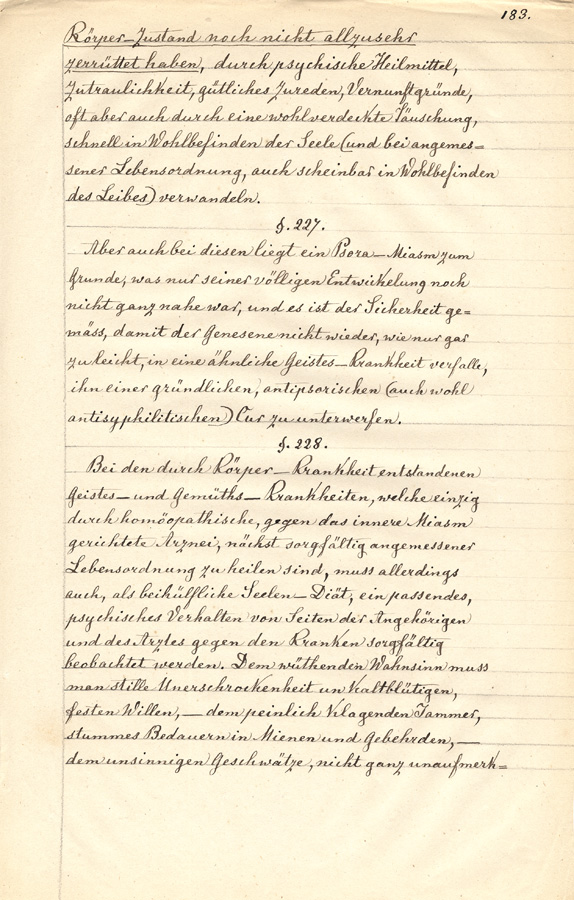 183.
Körper-Zustand noch nicht allzusehr
zerrüttet haben, durch psychische Heilmittel,
Zutraulichkeit, gütliches Zureden, Vernunftgründe,
oft aber auch durch eine wohlverdeckte Täuschung,
schnell in Wohlbefinden der Seele (und bei angemes=
sener Lebensordnung, auch scheinbar in Wohlbefinden
des Leibes) verwandeln.
§. 227.
Aber auch bei diesen liegt ein Psora-Miasm zum
Grunde, was nur seiner völligen Entwickelung noch
nicht ganz nahe war, und es ist der Sicherheit ge=
mäss, damit der Genesene nicht wieder, wie nur gar
zu leicht, in eine ähnliche Geistes-Krankheit verfalle,
ihn einer gründlichen, antipsorischen (auch wohl
antisyphilitischen) Cur zu unterwerfen.
§. 228.
Bei den durch Körper-Krankheit entstandenen
Geistes- und Gemüths-Krankheiten, welche einzig
durch homöopathische, gegen das innere Miasm
gerichtete Arznei, nächst sorgfältig angemessener
Lebensordnung zu heilen sind, muss allerdings
auch, als beihülfliche Seelen-Diät, ein passendes,
psychisches Verhalten von Seiten der Angehörigen
und des Arztes gegen den Kranken sorgfältig
beobachtet werden. Dem wüthenden Wahnsinn muss
man stille Unerschrockenheit un Kaltblütigen,
festen Willen, — dem peinlich klagenden Jammer,
stummes Bedauern in Mienen und Gebehrden, —
dem unsinnigen Geschwätze, nicht ganz unaufmerk=